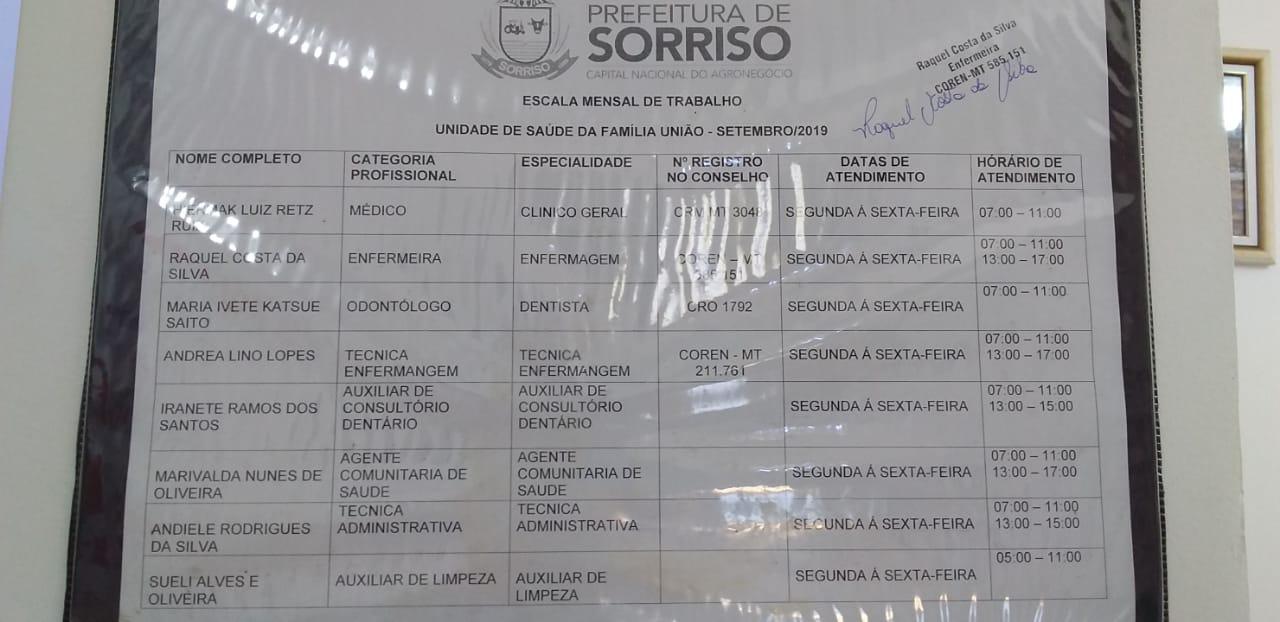 PREFEITURA DE
SORRISO
CAPITAL NACIONAL DO AGRONEGÓCIO
SORRISO
Raquel Costa da Silva
Enfermeira
COREN-MT 585.151
Raquel Costa da Silva
ESCALA MENSAL DE TRABALHO
UNIDADE DE SAÚDE DA FAMÍLIA UNIÃO - SETEMBRO/2019
NOME COMPLETO
CATEGORIA
PROFISSIONAL
ESPECIALIDADE
Nº REGISTRO
NO CONSELHO
DATAS DE
ATENDIMENTO
HÓRÁRIO DE
ATENDIMENTO
LUIZ RETZ
MÉDICO
CLINICO GERAL
CRM MT 3048
SEGUNDA Á SEXTA-FEIRA
07:00 – 11:00
RAQUEL COSTA DA
SILVA
ENFERMEIRA
ENFERMAGEM
COREN – MT
SEGUNDA Á SEXTA-FEIRA
07:00 – 11:00
13:00 – 17:00
MARIA IVETE KATSUE
SAITO
ODONTÓLOGO
DENTISTA
CRO 1792
SEGUNDA Á SEXTA-FEIRA
07:00 – 11:00
ANDREA LINO LOPES
TECNICA
ENFERMANGEM
TECNICA
ENFERMANGEM
COREN - MT
211.761
SEGUNDA Á SEXTA-FEIRA
07:00 – 11:00
13:00 – 17:00
IRANETE RAMOS DOS
SANTOS
AUXILIAR DE
CONSULTÓRIO
DENTÁRIO
AUXILIAR DE
CONSULTÓRIO
DENTÁRIO
SEGUNDA Á SEXTA-FEIRA
07:00 – 11:00
13:00 – 15:00
MARIVALDA NUNES DE
OLIVEIRA
AGENTE
COMUNITARIA DE
SAUDE
AGENTE
COMUNITARIA DE
SAUDE
SEGUNDA Á SEXTA-FEIRA
07:00 – 11:00
13:00 – 17:00
ANDIELE RODRIGUES
DA SILVA
TECNICA
ADMINISTRATIVA
TECNICA
ADMINISTRATIVA
SEGUNDA Á SEXTA-FEIRA
07:00 – 11:00
13:00 – 15:00
SUELI ALVES E
OLIVEIRA
AUXILIAR DE LIMPEZA
AUXILIAR DE
LIMPEZA
SEGUNDA Á SEXTA-FEIRA
05:00 – 11:00